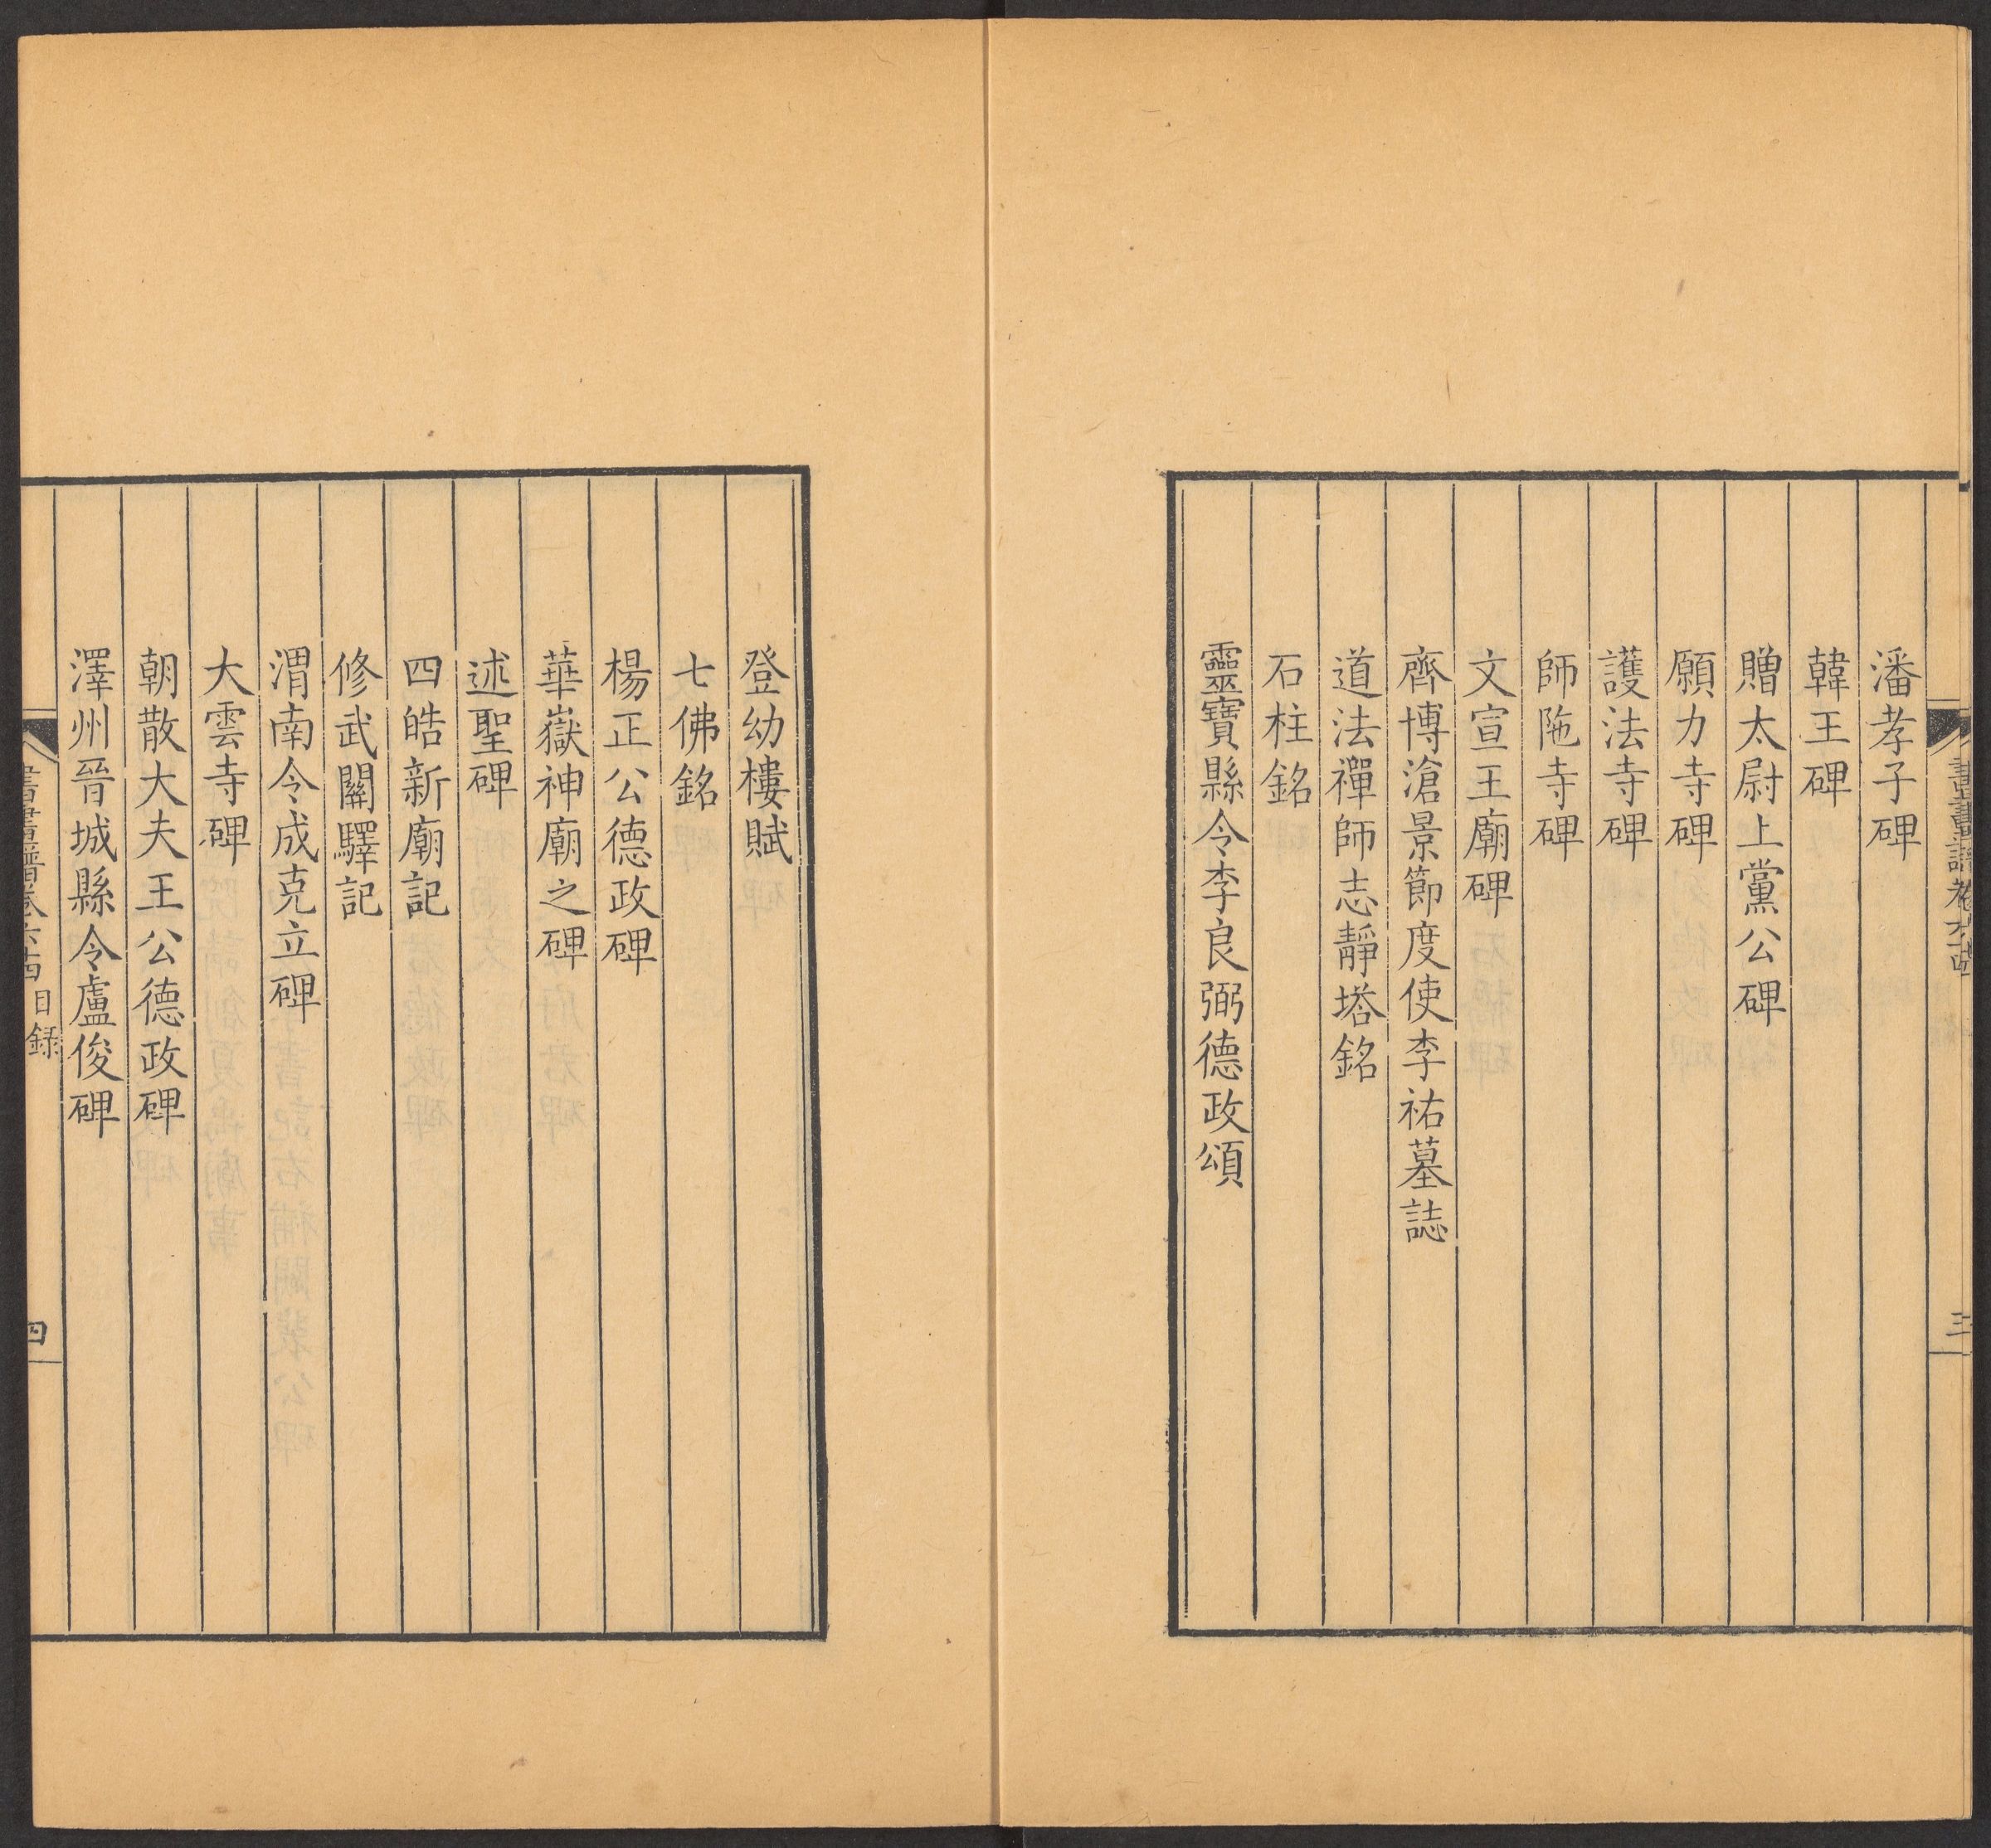 潘孝子碑
韓王碑
贈太尉上黨公碑
願力寺碑
護法寺碑
師陁寺碑
文宣王廟碑
齊博滄景節度使李祐墓誌
道法禪師志靜塔銘
石柱銘
靈寶縣令李良弼德政頌
三
登幼樓賦
七佛銘
楊正公德政碑
華嶽神廟之碑
述聖碑
四皓新廟記
修武關驛記
渭南令成克立碑
大雲寺碑
朝散大夫王公德政碑
澤州晉城縣令盧俊碑
書畫譜卷六十四 目錄
四